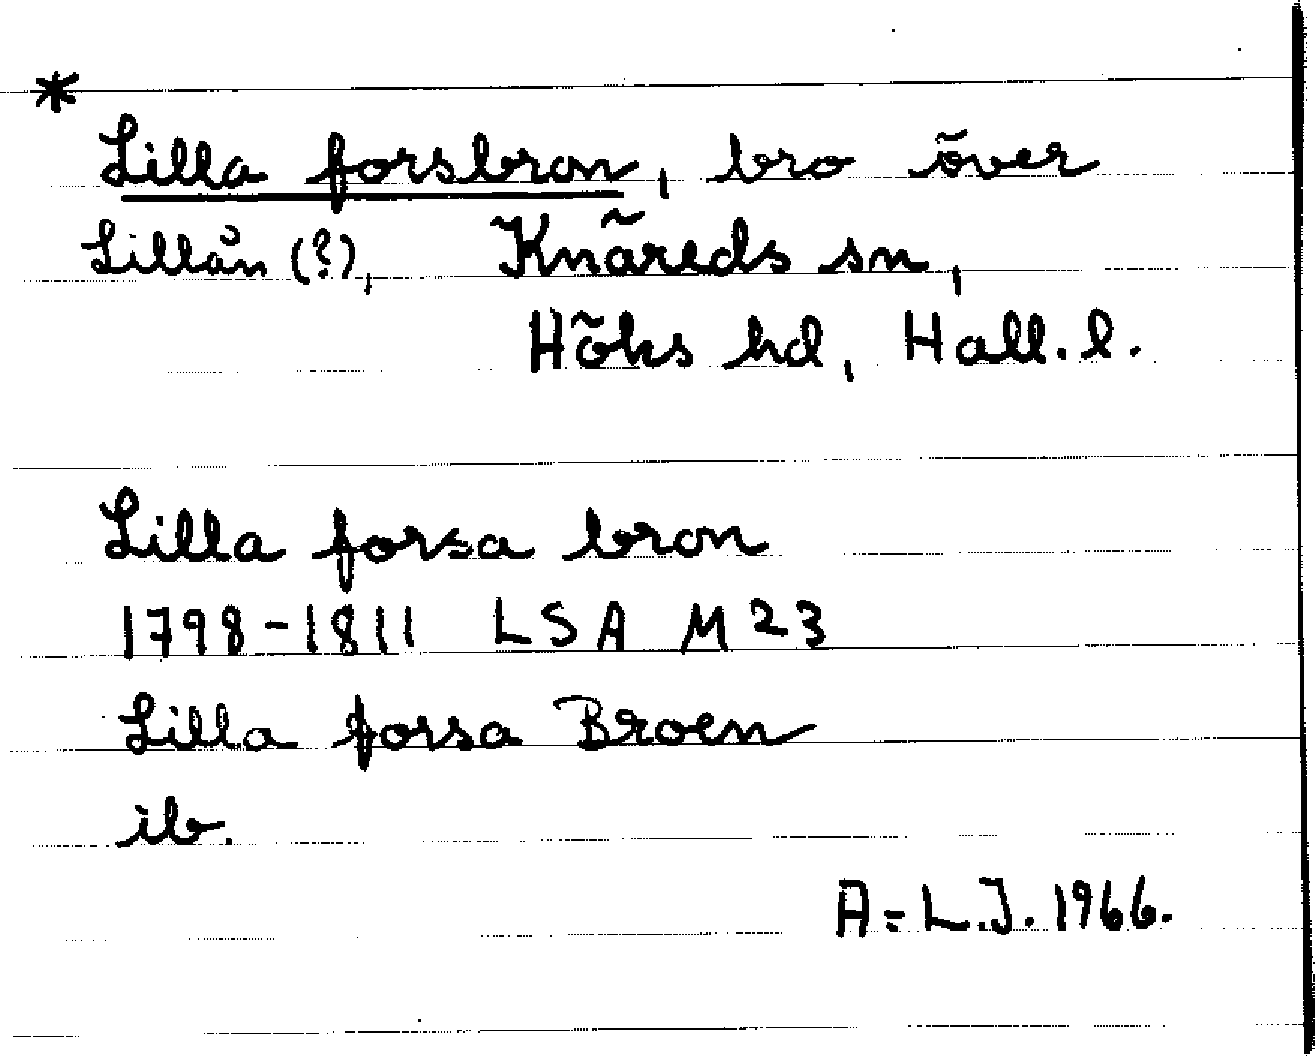 *
Lilla forsbron, bro över
Lillån (?), Knäreds sn,
Höks hd, Hall. l.
Lilla forsa bron
1798-1811 LSA M23
Lilla forsa Broen
ib.
A-L.J. 1966.